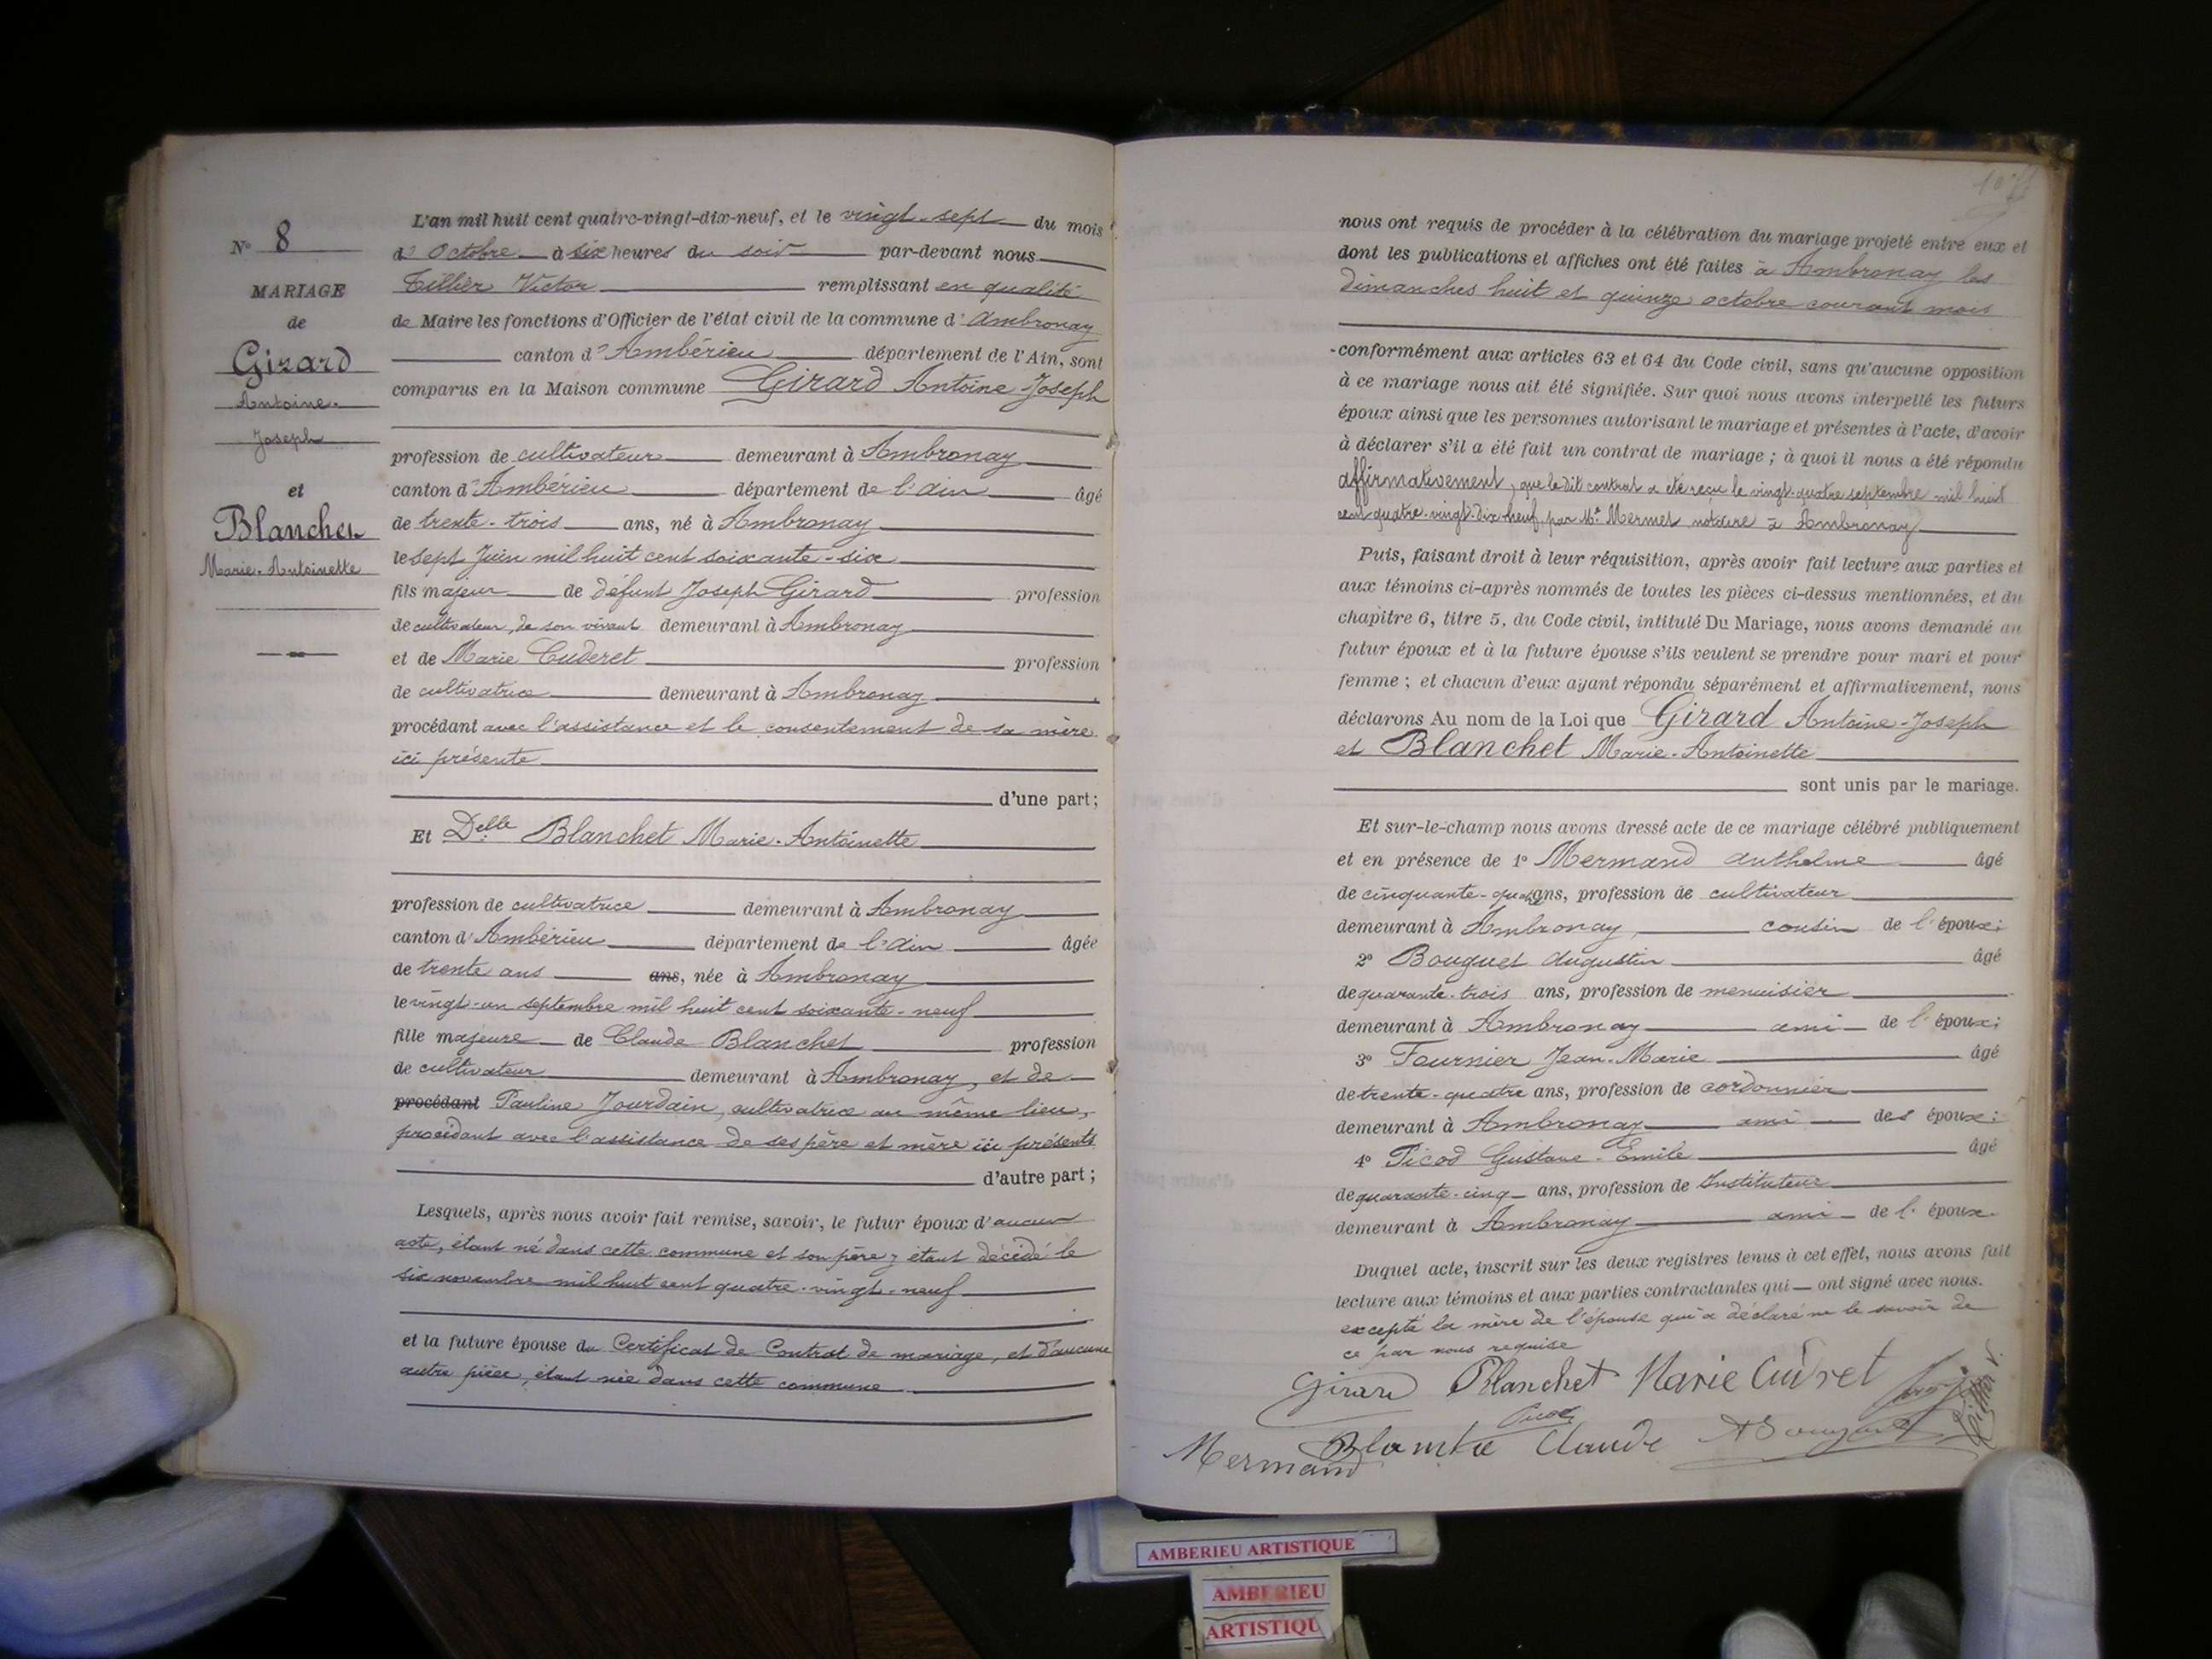 N° 8
MARIAGE
de
Girard
Antoine
Joseph
et
Blanchet
Marie-Antoinette
L'an mil huit cent quatre-vingt-dix-neuf, et le vingt-sept du mois
d'Octobre à six heures du soir par-devant nous
Tillier Victor remplissant en qualité
de Maire les fonctions d'Officier de l'état civil de la commune d'Ambronay
canton d'Ambérieu département de l'Ain, sont
comparus en la Maison commune Girard Antoine-Joseph
profession de cultivateur demeurant à Ambronay
canton d'Ambérieu département de l'ain âgé
de trente-trois ans, né à Ambronay
le sept Juin mil huit cent soixante-six
fils majeur de défunt Joseph Girard profession
de cultivateur, de son vivant demeurant à Ambronay
et de Marie Cuderet profession
de cultivatrice demeurant à Ambronay
procédant avec l'assistance et le consentement de sa mère
ici présente
d'une part;
Et Delle Blanchet Marie-Antoinette
profession de cultivatrice demeurant à Ambronay
canton d'Ambérieu département de l'Ain âgée
de trente ans ans, née à Ambronay
le vingt-un septembre mil huit cent soixante-neuf
fille majeure de Claude Blanchet profession
de cultivateur demeurant à Ambronay, et de
procédant Pauline Jourdain, cultivatrice au même lieu,
procédant avec l'assistance de ses père et mère ici présents
d'autre part;
Lesquels, après nous avoir fait remise, savoir, le futur époux d'aucun
acte, étant né dans cette commune et son père y étant décédé le
six novembre mil huit cent quatre-vingt-neuf
et la future épouse du Certificat de Contrat de mariage, et d'aucune
autre pièce, étant née dans cette commune
nous ont requis de procéder à la célébration du mariage projeté entre eux et
dont les publications et affiches ont été faites à Ambronay les
dimanches huit et quinze octobre courant mois
conformément aux articles 63 et 64 du Code civil, sans qu'aucune opposition
à ce mariage nous ait été signifiée. Sur quoi nous avons interpellé les futurs
époux ainsi que les personnes autorisant le mariage et présentes à l'acte, d'avoir
à déclarer s'il a été fait un contrat de mariage; à quoi il nous a été répondu
affirmativement, que le dit contrat a été reçu le vingt-quatre septembre mil huit
cent quatre-vingt-dix-neuf, par Me Mermet notaire à Ambronay
Puis, faisant droit à leur réquisition, après avoir fait lecture aux parties et
aux témoins ci-après nommés de toutes les pièces ci-dessus mentionnées, et du
chapitre 6, titre 5, du Code civil, intitulé Du Mariage, nous avons demandé au
futur époux et à la future épouse s'ils veulent se prendre pour mari et pour
femme; et chacun d'eux ayant répondu séparément et affirmativement, nous
déclarons Au nom de la Loi que Girard Antoine-Joseph
et Blanchet Marie-Antoinette
sont unis par le mariage.
Et sur-le-champ nous avons dressé acte de ce mariage célébré publiquement
et en présence de 1° Mermand Anthelme âgé
de cinquante- ans, profession de cultivateur
demeurant à Ambronay, cousin de l'époux;
2° Bouguet Augustin âgé
de quarante-trois ans, profession de menuisier
demeurant à Ambronay ami de l'époux;
3° Fournier Jean-Marie âgé
de trente-quatre ans, profession de cordonnier
demeurant à Ambronay ami des époux;
4° Picod Gustave-Emile âgé
de quarante-cinq ans, profession de Instituteur
demeurant à Ambronay ami de l'époux.
Duquel acte, inscrit sur les deux registres tenus à cet effet, nous avons fait
lecture aux témoins et aux parties contractantes qui ont signé avec nous.
excepté la mère de l'épouse qui a déclaré ne le savoir de
ce par nous requise
Girard Blanchet Marie Cudret
Picod
Claude
Mermand
AMBERIEU ARTISTIQUE
AMBERIEU
ARTISTIQU